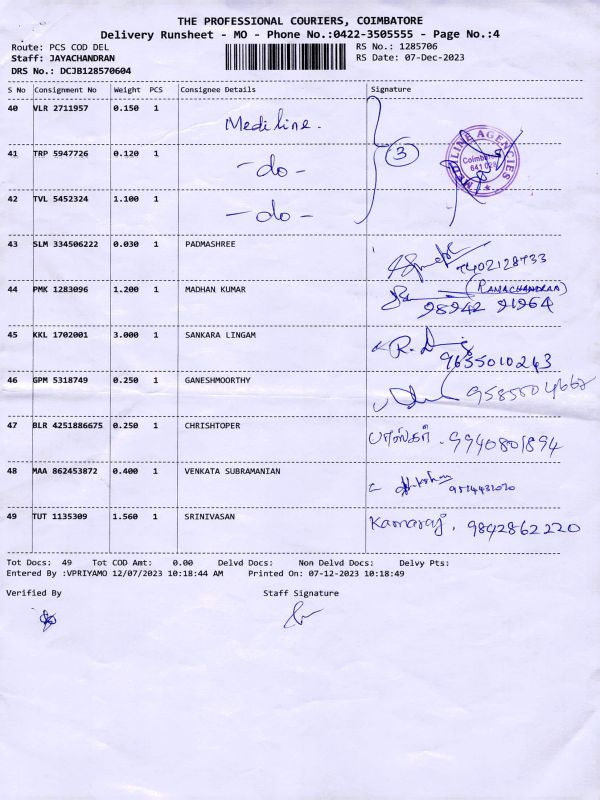 THE PROFESSIONAL COURIERS, COIMBATORE
Delivery Runsheet - MO - Phone No.:0422-3505555 - Page No.:4
Route: PCS COD DEL RS No.: 1285706
Staff: JAYACHANDRAN RS Date: 07-Dec-2023
DRS No.: DCJB128570604
S No Consignment No Weight PCS Consignee Details Signature
40 VLR 2711957 0.150 1 Mediline.
41 TRP 5947726 0.120 1 -do- 3
MEDILINE AGENCIES
Coimbatore
42 TVL 5452324 1.100 1 -do-
43 SLM 334506222 0.030 1 PADMASHREE 7402128733
44 PMK 1283096 1.200 1 MADHAN KUMAR (RAMACHANDRAN)
98942 91964
45 KKL 1702001 3.000 1 SANKARA LINGAM R.
9655010243
46 GPM 5318749 0.250 1 GANESHMOORTHY 9585504662
47 BLR 4251886675 0.250 1 CHRISHTOPER பாஸ்கர். 9940801894
48 MAA 862453872 0.400 1 VENKATA SUBRAMANIAN
49 TUT 1135309 1.560 1 SRINIVASAN Kamaraj. 9842862220
Tot Docs: 49 Tot COD Amt: 0.00 Delvd Docs: Non Delvd Docs: Delvy Pts:
Entered By :VPRIYAMO 12/07/2023 10:18:44 AM Printed On: 07-12-2023 10:18:49
Verified By Staff Signature